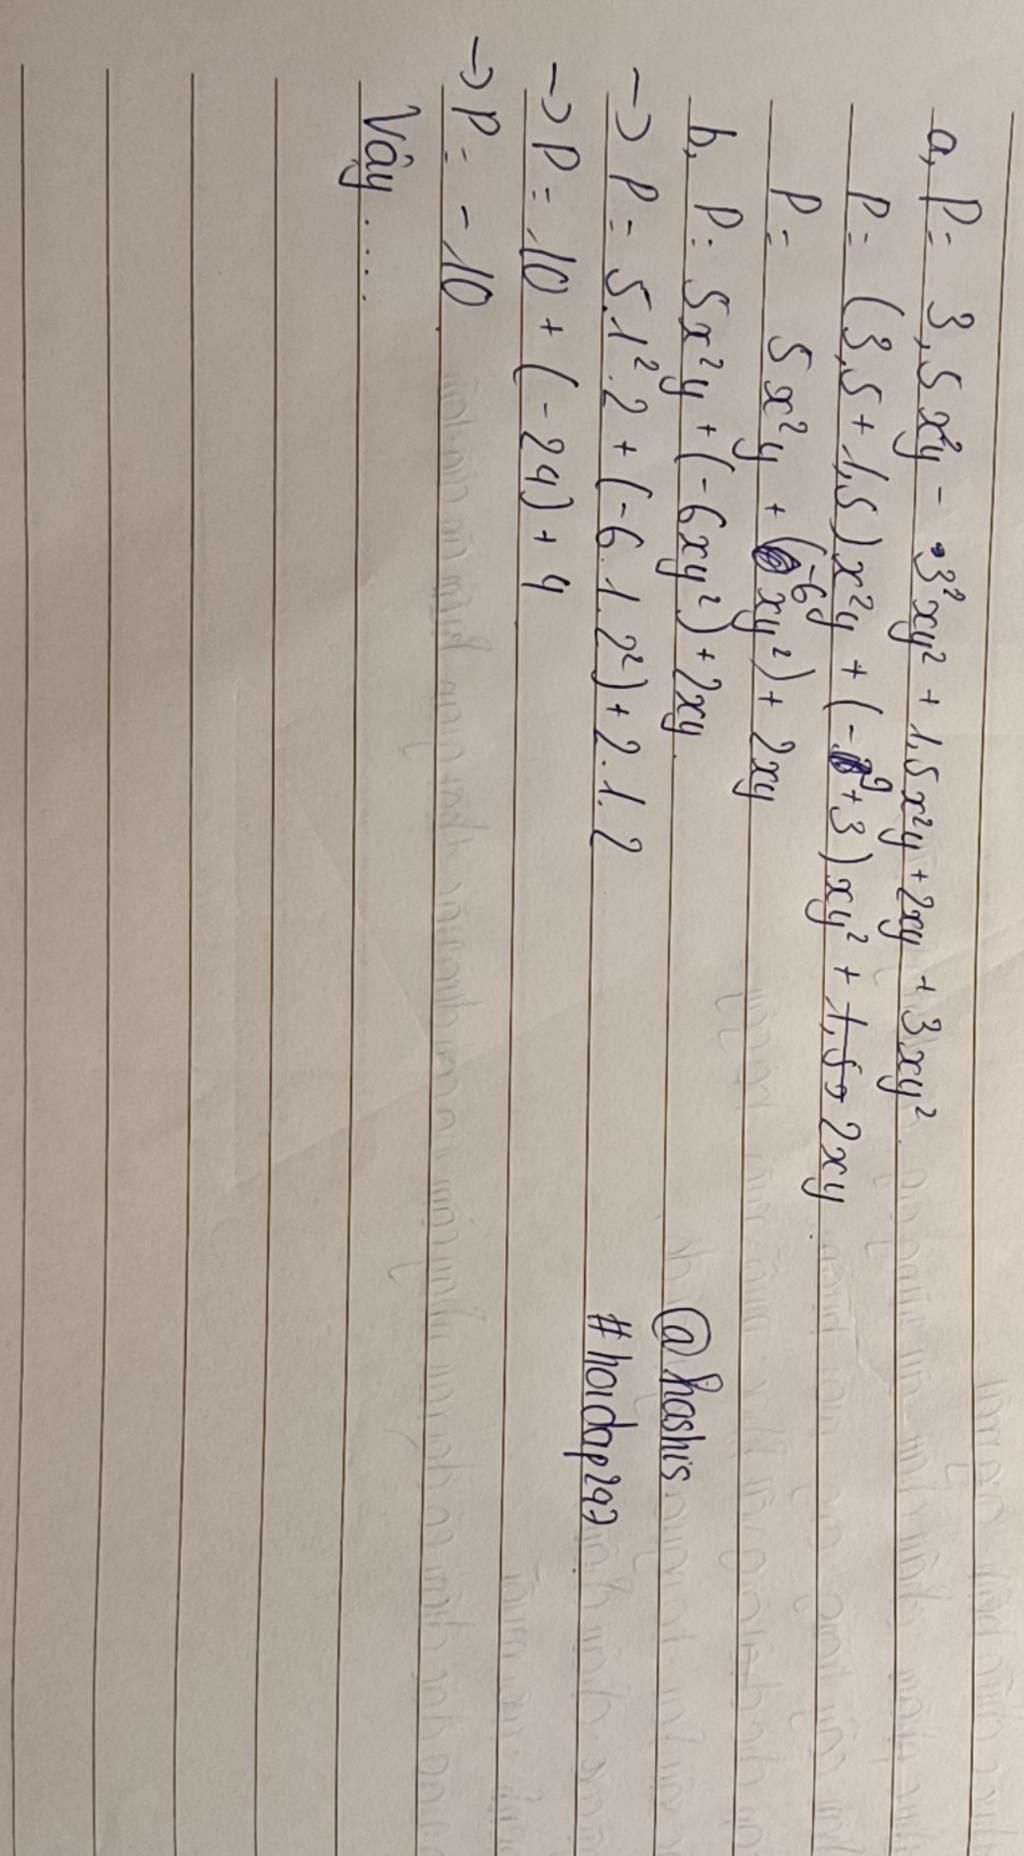 a, P = 3,5x²y - 3²xy² + 1,5x²y + 2xy + 3xy²
P = (3,5 + 1,5)x²y + (-² + 3)xy² + 2xy
P = 5x²y + (-6xy²) + 2xy
b, P = 5x²y + (-6xy²) + 2xy
→ P = 5.1².2 + (-6.1.2²) + 2.1.2
→ P = 10 + (-24) + 4
→ P = -10
Vây .....
@hashis
#hoidap247